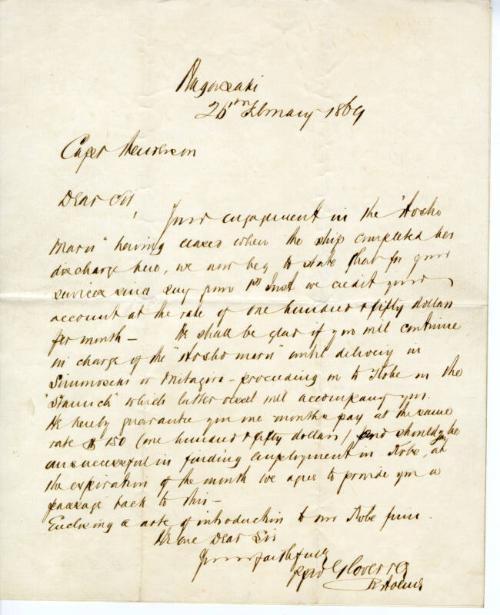 Nagasaki
26th February 1869
Capt Henderson
Dear Sir,
Your engagement in the "Hosho
Maru" having ceased when the ship completed her
discharge here, we now beg to state that for your
services since say from 1st Inst we credit your
account at the rate of one hundred & fifty dollars
per month — We shall be glad if you will continue
in charge of the "Hosho Maru" until delivery in
Simonoseki or Mitagiri — proceeding on to Kobe in the
"Staunch" which latter vessel will accompany you.
We hereby guarantee you one months pay at the same
rate $150 (one hundred & fifty dollars) and should you be
unsuccessful in finding employment in Kobe, at
the expiration of the month we agree to provide you a
passage back to this —
Enclosing a note of introduction to our Kobe firm.
We are Dear Sir
Yours faithfully
Glover & Co